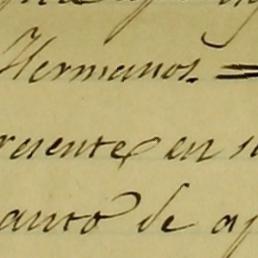 Hermanos. =
resente en s
anto de ap